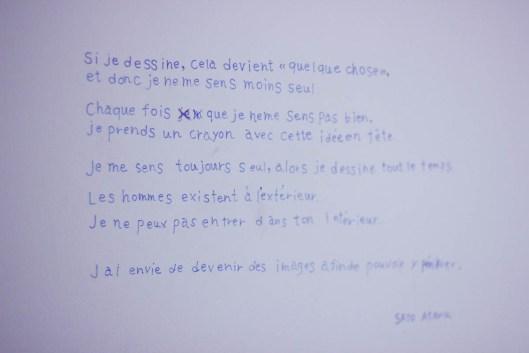 Si je dessine, cela devient « quelque chose»,
et donc je me sens moins seul
Chaque fois que je me sens pas bien,
je prends un crayon avec cette idée en tête.
Je me sens toujours seul, alors je dessine tout le temps
Les hommes existent à l'extérieur.
Je ne peux pas entrer dans ton intérieur.
J'ai envie de devenir des images afin de pouvoir y pénétrer.
SATO